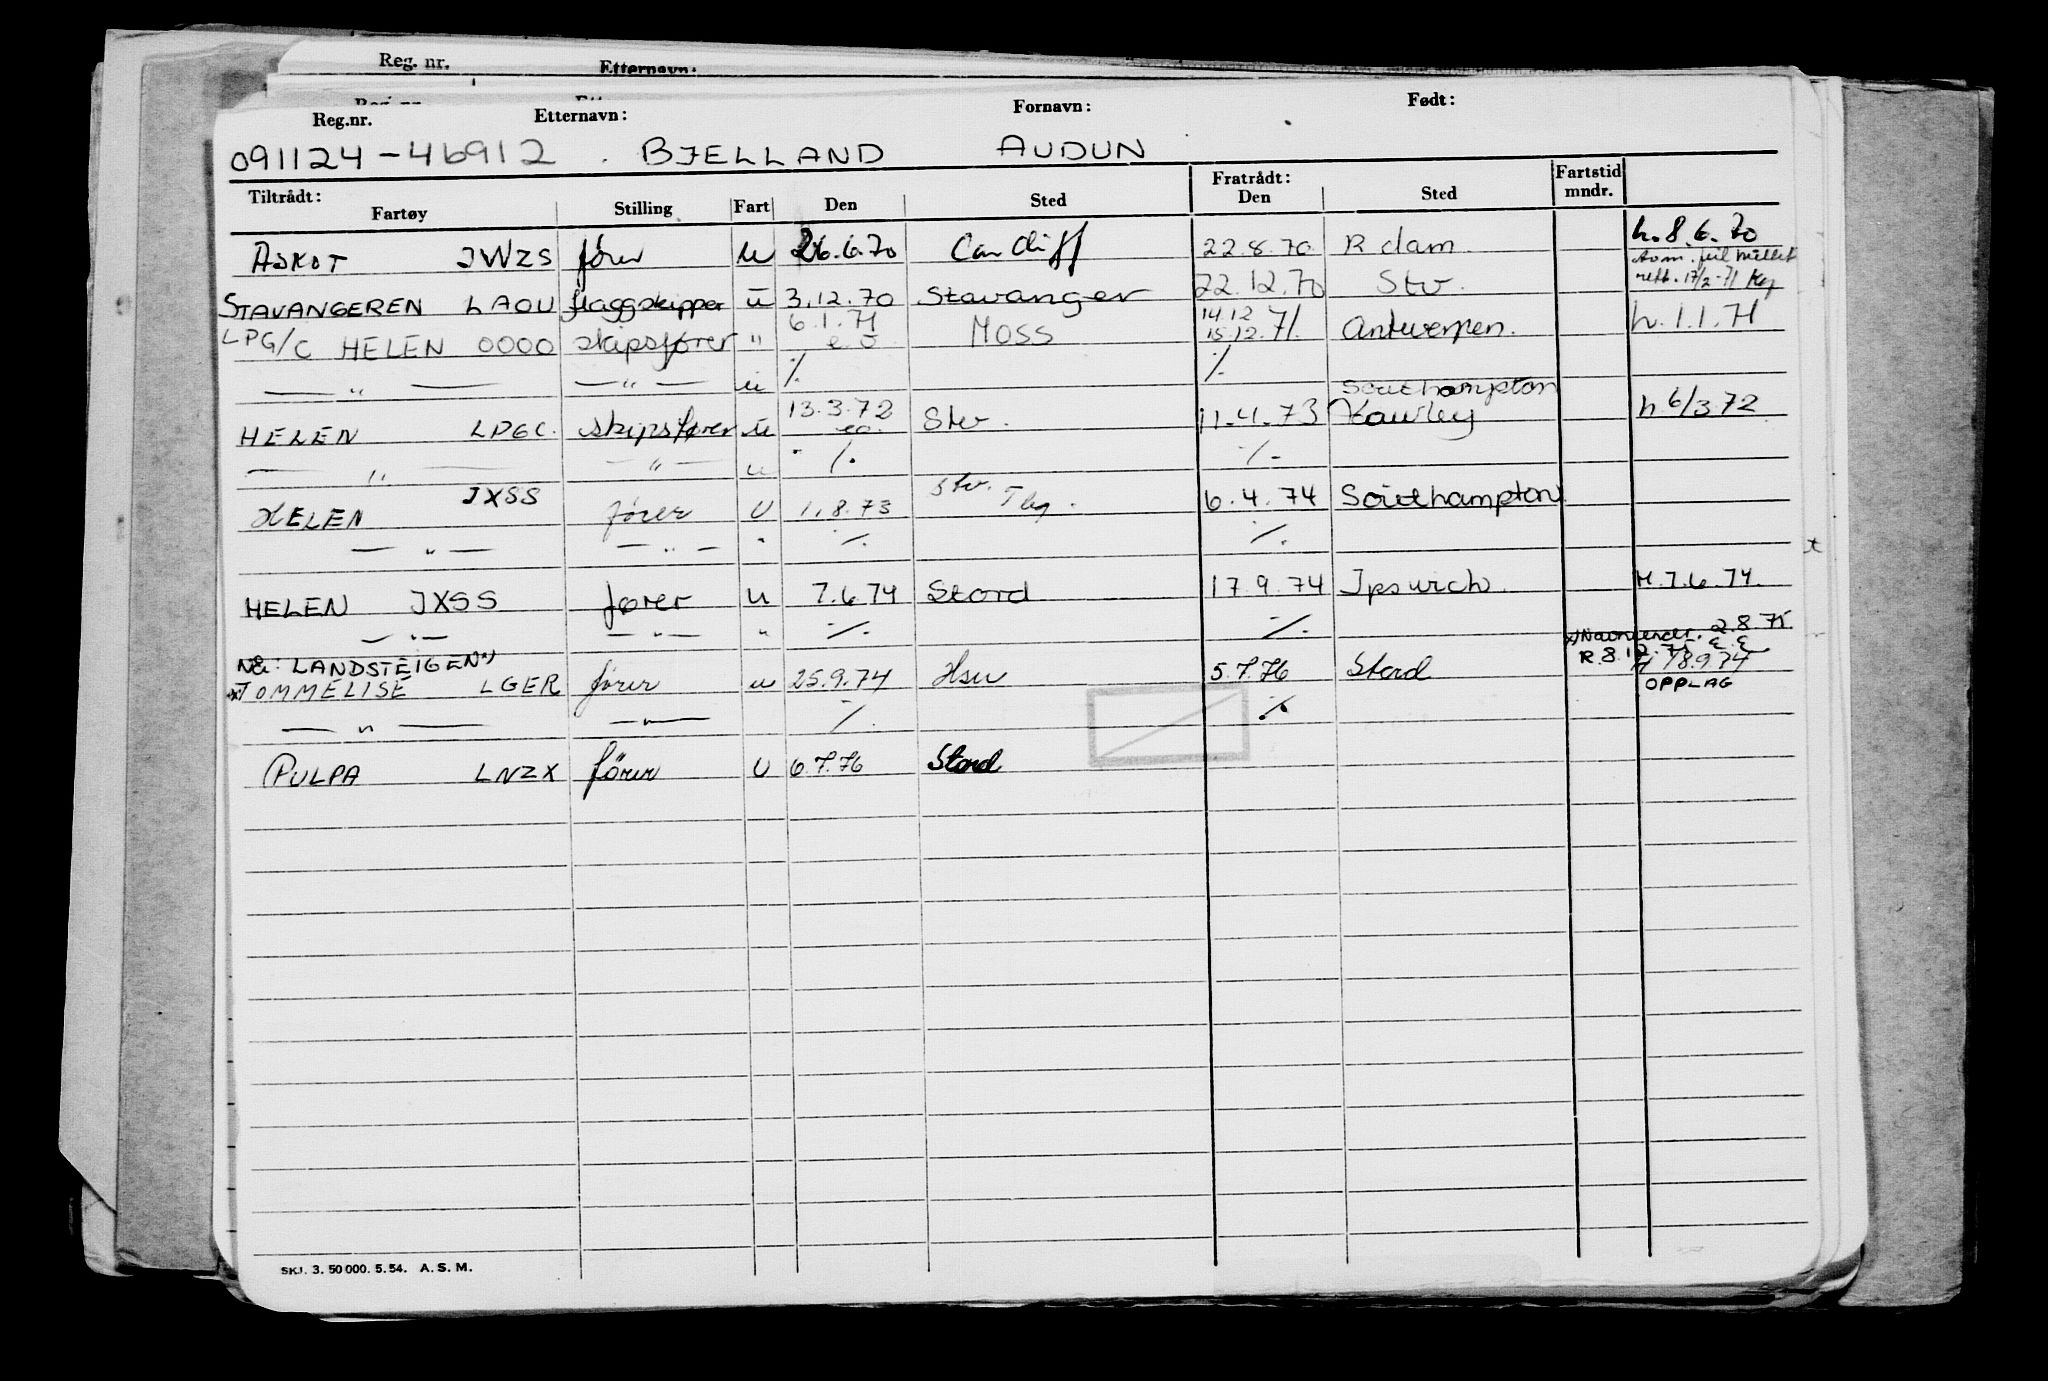 Reg. nr. Etternavn:
Reg.nr. Etternavn: Fornavn: Født:
091124-46912 . BJELLAND AUDUN
Tiltrådt: Fratrådt: Fartstid
Fartøy Stilling Fart Den Sted Den Sted mndr.
ASKOT JWZS fører u 26.6.70 Cardiff 22.8.70 R dam h. 8.6.70
STAVANGEREN LAOU flaggskipper u 3.12.70 Stavanger 22.12.70 Stv. rett. 17/2-71
LPG/C HELEN OOOO skipsfører " 6.1.71 MOSS 14.12 15.12.71. Antwerpen. h. 1.1.71
— " — — " — u ./. ./.
Southampton
HELEN LPGC. skipsfører u 13.3.72 Stv. 11.4.73 h 6/3 72
— " — — " — u ./. ./.
HELEN JXSS fører U 1.8.73 Stv. 6.4.74 Southampton
— " — — " — " ./. ./.
HELEN JXSS fører u 7.6.74 Stord 17.9.74 Ipswich H. 7.6.74.
— " — — " — " ./. ./.
x) Navneendr. 2.8.75.
Nå: LANDSTEIGEN x) R.8.12.75
x) TOMMELISE LGER fører u 25.9.74 Hsu 5.7.76 Stord H 18.9.74
OPPLAG
— " — — " — ./. ./.
PULPA LNZX fører U 6.7.76 Stord
SKJ. 3. 50 000. 5. 54. A. S. M.